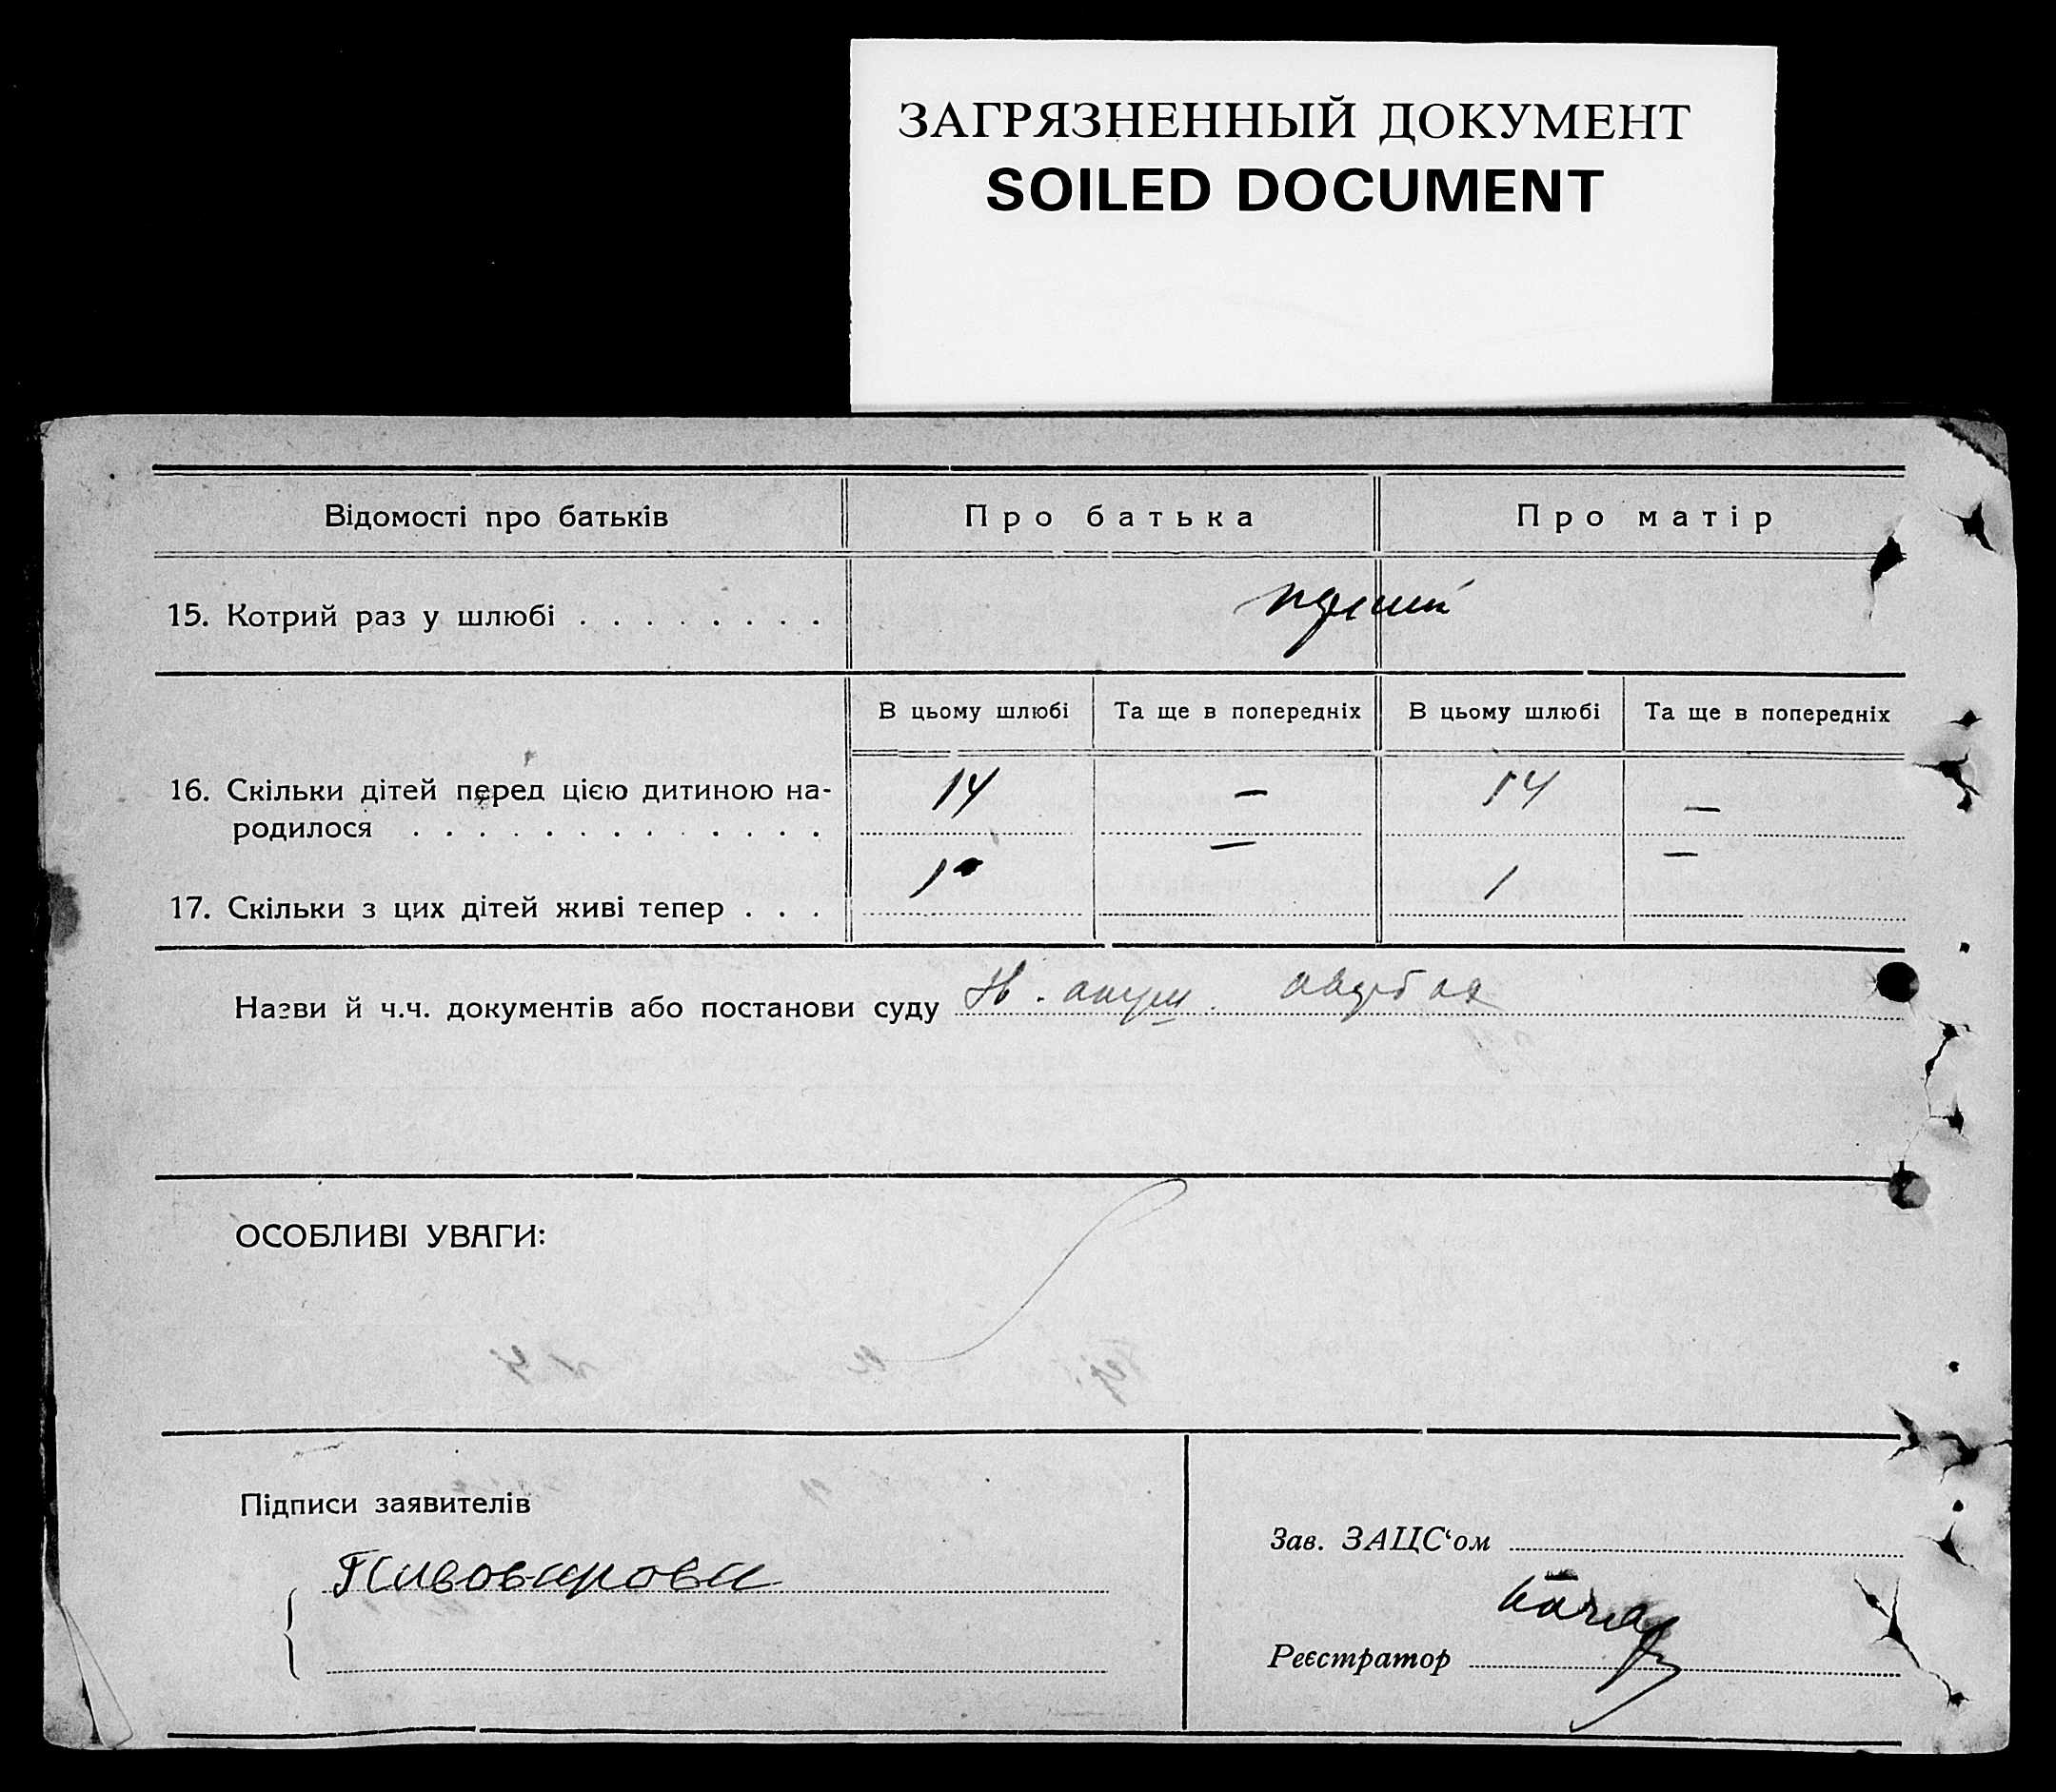 ЗАГРЯЗНЕННЫЙ ДОКУМЕНТ
SOILED DOCUMENT
Відомості про батьків Про батька Про матір
15. Котрий раз у шлюбі . . . . . . . .
В цьому шлюбі Та ще в попередніх В цьому шлюбі Та ще в попередніх
16. Скільки дітей перед цією дитиною на-
родилося . . . . . . . . . . . . . 14 — 14 —
17. Скільки з цих дітей живі тепер . . . 1 — 1 —
Назви й ч.ч. документів або постанови суду
ОСОБЛИВІ УВАГИ:
Підписи заявителів
Зав. ЗАЦС‘ом
Пивоварова
Реєстратор